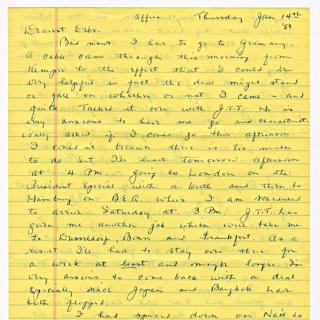 Office Thursday Jan 14th
'59
Dearest Debs.
Bad news. I have to go to Germany.
A cable came through this morning from
to the effect that I could be
very helpful in fact the deal might stand
or fall on whether or not I came - and
quick. Talked it over with J.T.T. He is
very anxious to have me go and
asked if I could go this afternoon
I could not because there is too much
to do but I'll leave tomorrow afternoon
at 4 P.M. going to London on the
President Special with a berth and then to
Hamburg on B.E.A. where I am scheduled
to arrive Saturday at 3 P.M. J.T.T. has
given me another job which will take me
to Dusseldorf, Bonn and Frankfort. As a
result I'll have to stay over there for
a week at least and might be longer. I'm
very anxious to come back with a deal
especially since Japan and Bangkok have
both flopped.
I has spaces down on